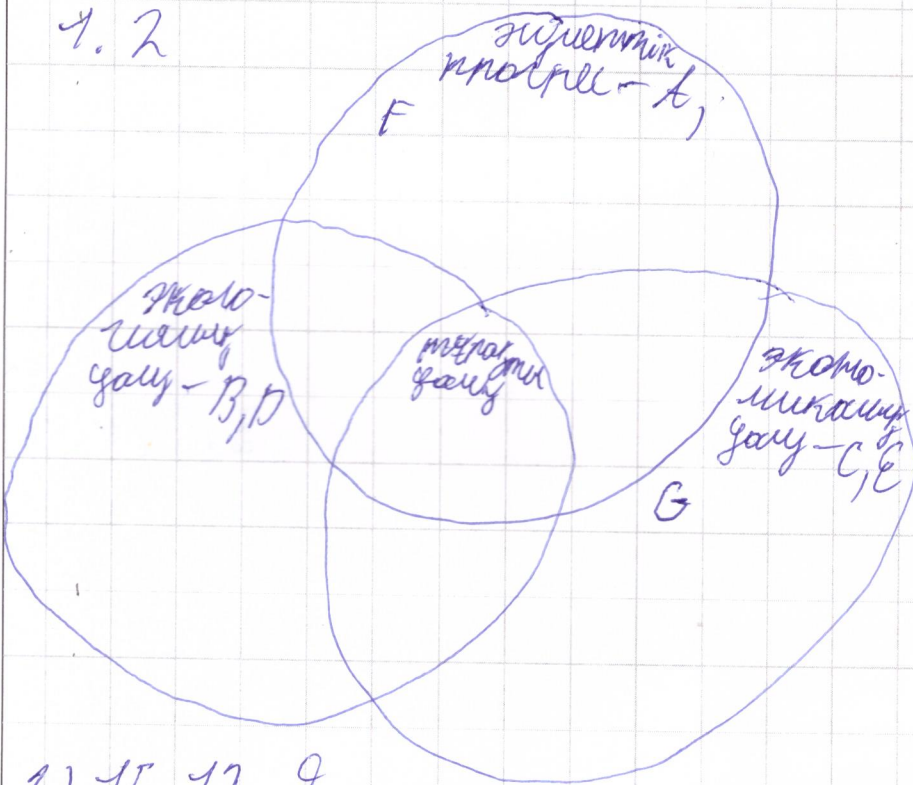 1. 2
әлуметтік
прогресс - A,
F
эколо-
гиялық
даму - B, D
тұрақты
даму
эконо-
микалық
даму - C, E
G